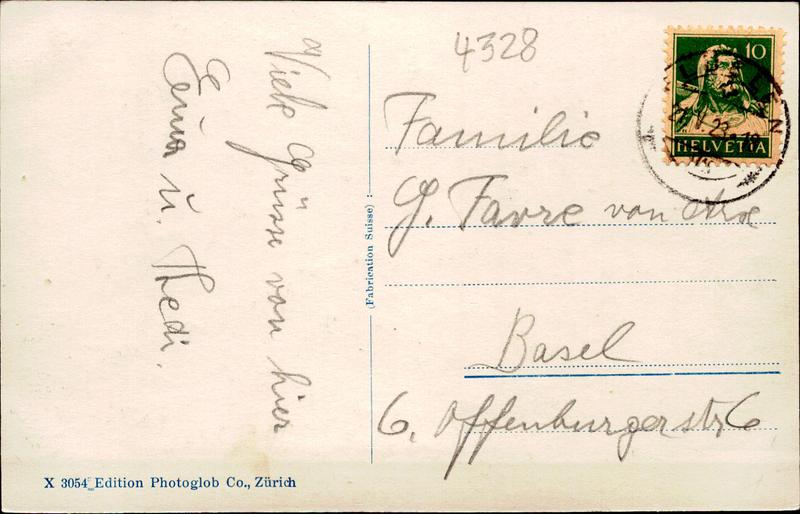 4328
10
HELVETIA
Familie
G. Favre von Arx
Basel
6. Offenburgerstr 6
Viele Grüsse von hier
Erna u. Hedi.
(Fabrication Suisse)
X 3054 Edition Photoglob Co., Zürich